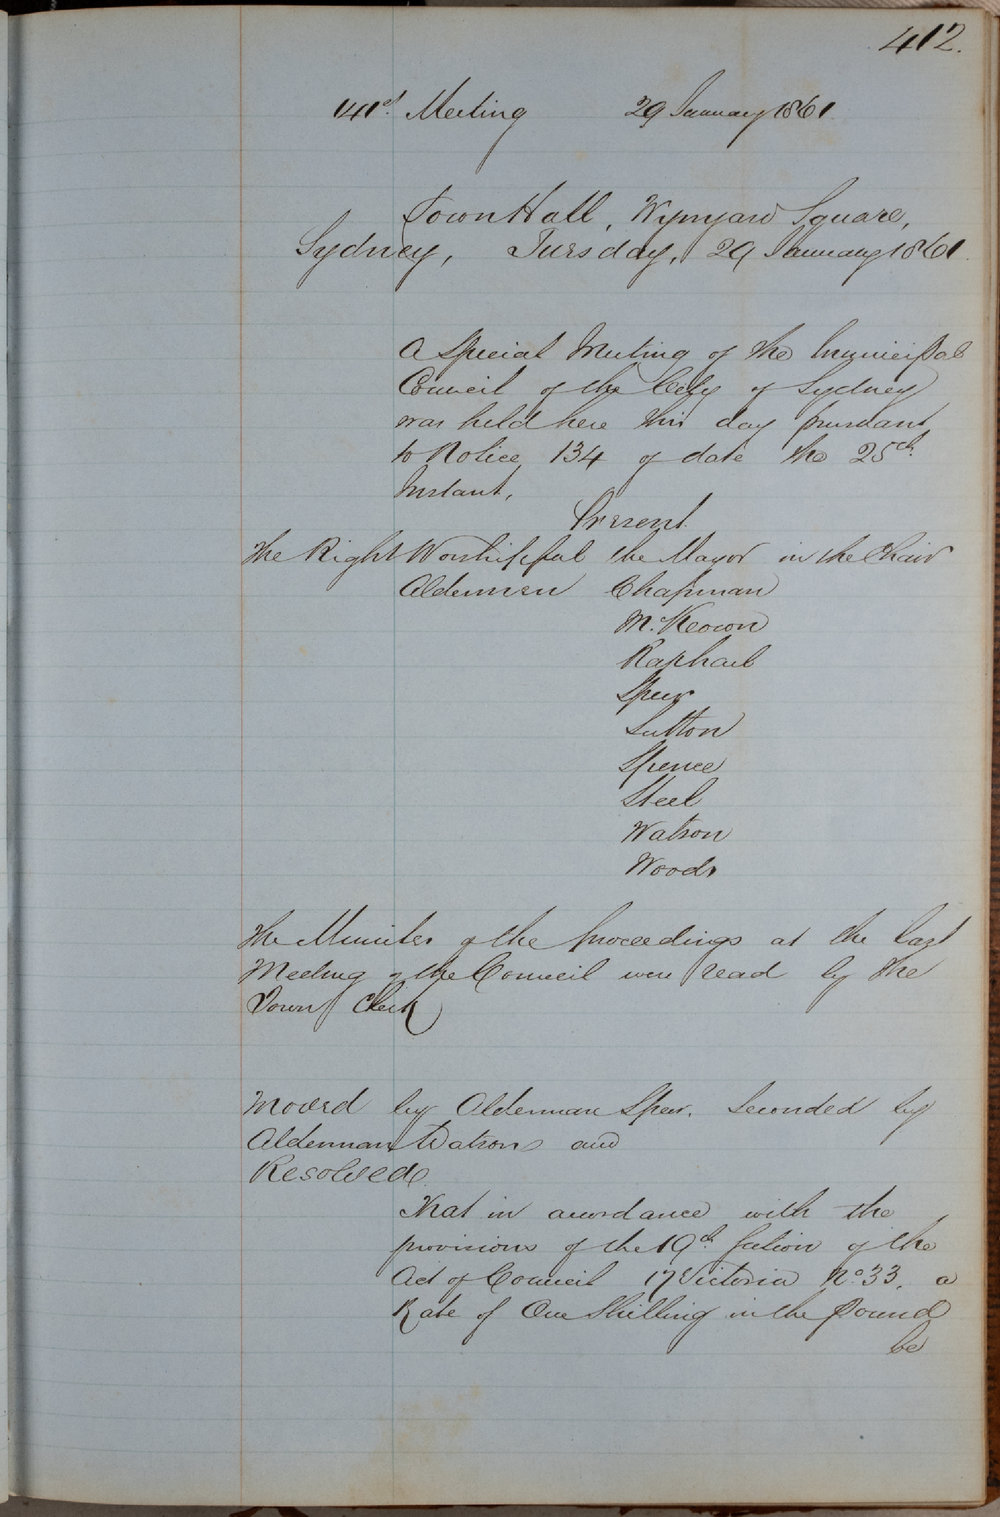 412.
141st Meeting 29 January 1861.
Town Hall, Wynyard Square,
Sydney, Tuesday, 29 January 1861.
A Special Meeting of the Municipal
Council of the City of Sydney
was held here this day pursuant
to Notice 134 of date the 25th
Instant,
Present
The Right Worshipful the Mayor in the Chair
Aldermen Chapman
McKeown
Raphael
Speer
Sutton
Spence
Steel
Watson
Woods
The Minutes of the proceedings at the last
Meeting of the Council were read by the
Town Clerk
Moved by Alderman Speer. Seconded by
Alderman Watson and
Resolved.
That in accordance with the
provisions of the 19th Section of the
Act of Council 17 Victoria No. 33, a
Rate of One Shilling in the Pound
be